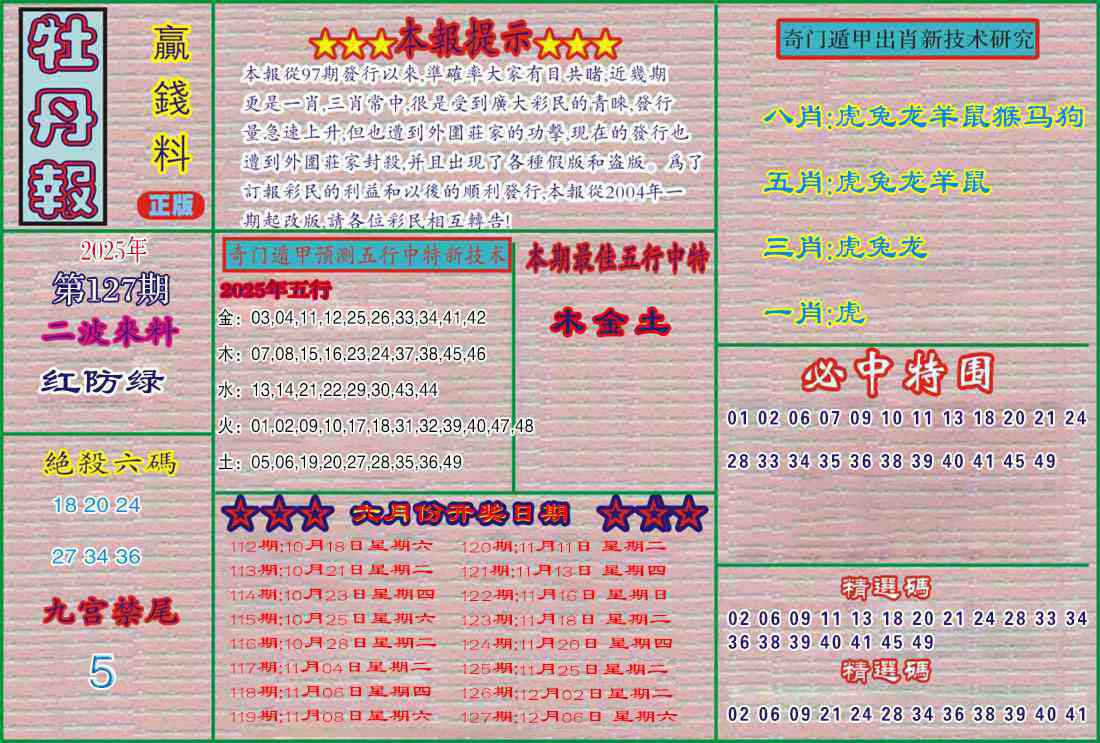 牡丹報
贏錢料
正版
2025年
第127期
二波來料
红防绿
絕殺六碼
18 20 24
27 34 36
九宫禁尾
5
★★★本報提示★★★
本報從97期發行以來,準確率大家有目共睹,近幾期
更是一肖,三肖常中,很是受到廣大彩民的青睞,發行
量急速上升,但也遭到外圍莊家的功擊,現在的發行也
遭到外圍莊家封殺,并且出現了各種假版和盗版。爲了
訂報彩民的利益和以後的順利發行,本報從2004年一
期起改版,請各位彩民相互轉告!
奇门遁甲预测五行中特新技术
2025年五行
金：03,04,11,12,25,26,33,34,41,42
木：07,08,15,16,23,24,37,38,45,46
水：13,14,21,22,29,30,43,44
火：01,02,09,10,17,18,31,32,39,40,47,48
土：05,06,19,20,27,28,35,36,49
本期最佳五行中特
木金土
☆☆☆ 六月份开奖日期 ☆☆☆
112期:10月18日星期六 120期:11月11日 星期二
113期:10月21日星期二 121期:11月13日 星期四
114期:10月23日星期四 122期:11月16日 星期日
115期:10月25日星期六 123期:11月18日 星期二
116期:10月28日星期二 124期:11月20日 星期四
117期:11月04日星期二 125期:11月25日星期二
118期:11月06日星期四 126期:12月02日星期二
119期:11月08日星期六 127期:12月06日 星期六
奇门遁甲出肖新技术研究
八肖:虎兔龙羊鼠猴马狗
五肖:虎兔龙羊鼠
三肖:虎兔龙
一肖:虎
必中特围
01 02 06 07 09 10 11 13 18 20 21 24
28 33 34 35 36 38 39 40 41 45 49
精選碼
02 06 09 11 13 18 20 21 24 28 33 34
36 38 39 40 41 45 49
精選碼
02 06 09 21 24 28 34 36 38 39 40 41